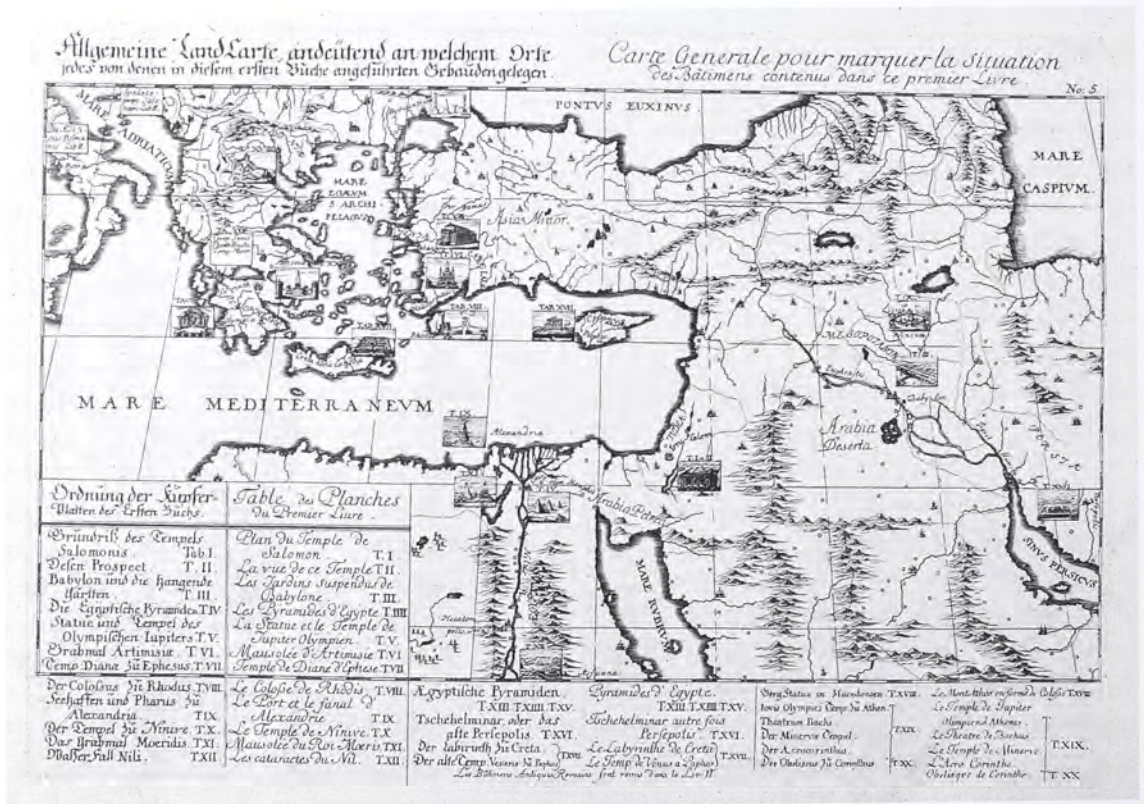 Allgemeine Land Carte, andeütend an welchem Orte
jedes von denen in diesem ersten Büche angeführten Gebäuden gelegen.
Carte Generale pour marquer la Situation
des Bâtimens contenus dans ce premier Livre.
No. 5.
MARE ADRIATIC
PONTVS EUXINVS
MARE
CASPIVM.
MARE
EGÆUM
S ARCHI
PELAGUS
Asia Minor
TAB. VIII
TAB. XVII
MESOPOTAM
Euphrates
Babylon
MARE MEDITERRANEVM
T. IX
Alexandria
Arabia
Deserta
Arabia Petr
MARE RVBRUM
SINVS PERSICVS
Ordnung der Kupfer-
Blatten des Ersten Buchs.
Gründriß des Tempels
Salomonis. Tab. I.
Dessen Prospect. T. II.
Babylon und die hangende
Gärtten. T. III.
Die Egyptische Pyramiden T. IV
Statue und Tempel des
Olympischen Iupiters T. V.
Grabmal Artimisiæ. T. VI.
Temp. Dianæ zü Ephesus. T. VII
Der Colossus zü Rhodus T. VIII.
Seehaffen und Pharus zü
Alexandria T. IX.
Der Tempel zü Ninive. T. X.
Das Grabmal Moeridis T. XI.
Wasser Fall Nili. T. XII.
Table des Planches
du Premier Livre.
Plan du Temple de
Salomon T. I
La vue de ce Temple T. II
Les Jardins suspendus de
Babylone. T. III.
Les Pyramides d'Egypte T. IIII
La Statue et le Temple de
Jupiter Olympien. T. V.
Mausolée d'Artimisie T. VI
Temple de Diane d'Ephese. T. VII
Le Colosse de Rhodis T. VIII.
Le Port et le fanal d'
Alexandrie T. IX
Le Temple de Ninive. T. X
Mausolée du Roi Mœris T. XI.
Les cataractes du Nil. T. XII.
Ægyptische Pyramiden.
T. XIII T. XIIII T. XV.
Tschehelminar, oder das
alte Persepolis. T. XVI.
Der Labirinth zü Creta
Der alte Temp. Veneris zü Paphos T. XVII.
Pyramides d'Egypte.
T. XIII T. XIIII T. XV.
Tschehelminar autre fois
Persepolis. T. XVI.
Le Labyrinthe de Creta
Le Temp. de Vénus a Paphos T. XVII.
Les Bâtimens Antiques Romains sont remis dans le Liv. II.
Berg Statue in Macedonien T. XVIII.
Iovis Olympici Temp. zü Athen.
Theatrum Bachi.
Der Minervæ Tempel.
Der Acrocorinthus.
T. XIX.
Der Obeliscus zü Corinthus T. XX.
Le Mont Athos en forme de Colosse T. XVIII
Le Temple de Jupiter
Olympien a Athenes.
Le Theatre de Bachus
Le Temple de Minerve
L'Acro Corinthe.
T. XIX.
Obelisque de Corinthe. T. XX